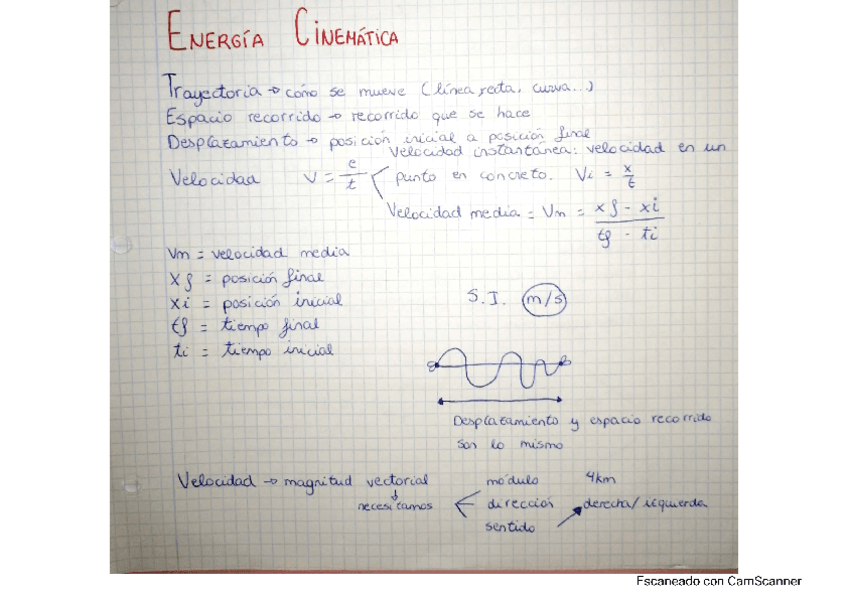 ENERGÍA CINEMÁTICA
Trayectoria → cómo se mueve (línea recta, curva...)
Espacio recorrido → recorrido que se hace
Desplazamiento → posición inicial a posición final
Velocidad instantánea: velocidad en un
punto en concreto. Vi = x/t
Velocidad V = e/t
Velocidad media = Vm = xf - xi / tf - ti
Vm = velocidad media
xf = posición final
xi = posición inicial
tf = tiempo final
ti = tiempo inicial
S.I. m/s
Desplazamiento y espacio recorrido
son lo mismo
Velocidad → magnitud vectorial
necesitamos
módulo 4km
dirección derecha/izquierda
sentido
Escaneado con CamScanner